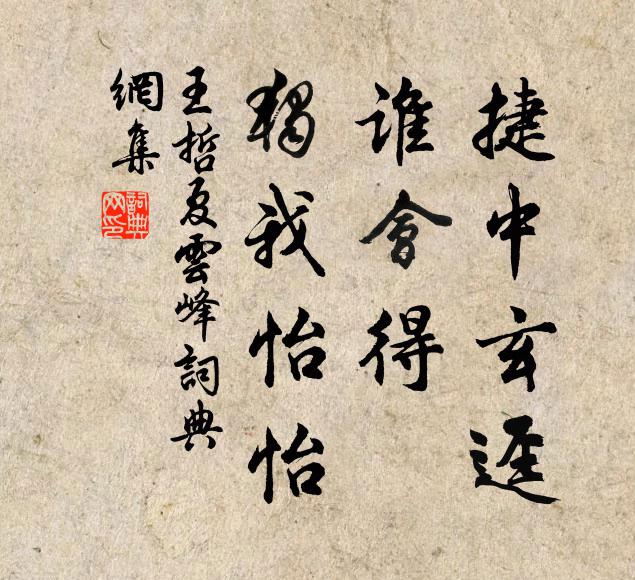 捷中玄逕
誰會得
獨我怡怡
王哲夏雲峰詞典
網集
詞典
网印